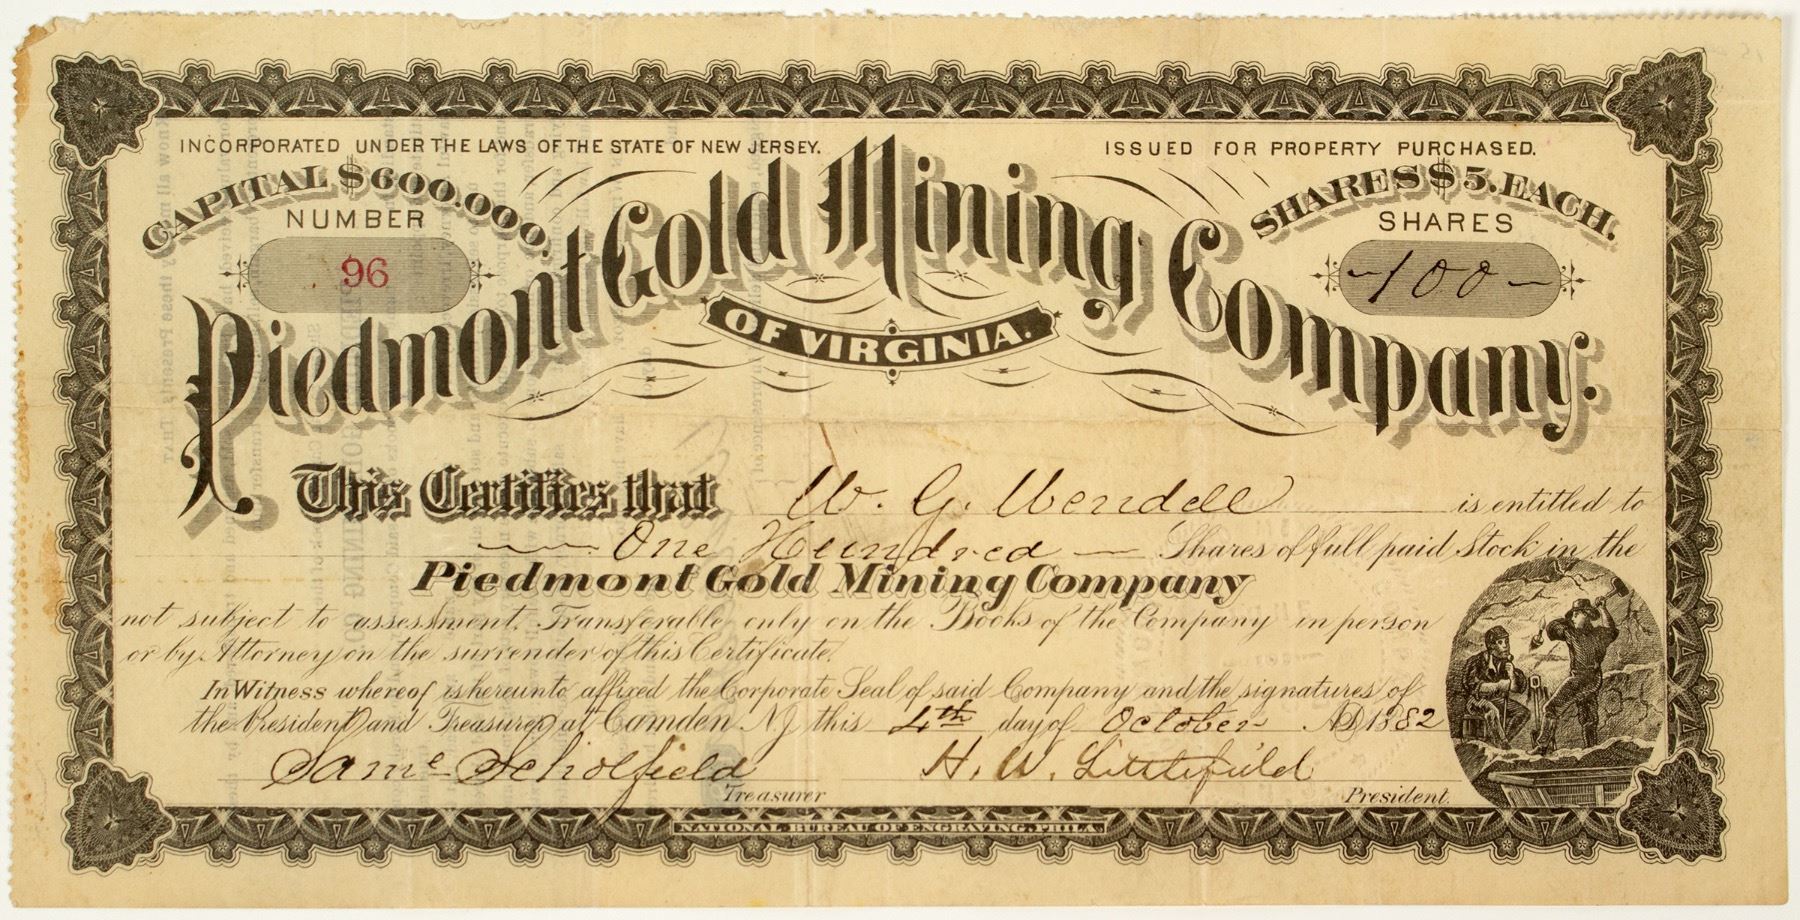 INCORPORATED UNDER THE LAWS OF THE STATE OF NEW JERSEY.
ISSUED FOR PROPERTY PURCHASED.
CAPITAL $600.000.
SHARES $5. EACH.
NUMBER
SHARES
96
-100-
Piedmont Gold Mining Company.
OF VIRGINIA.
This Certifies that W. G. Wendell is entitled to
One Hundred Shares of full paid Stock in the
Piedmont Gold Mining Company
not subject to assessment. Transferable only on the Books of the Company in person
or by Attorney on the surrender of this Certificate.
In Witness whereof is hereunto affixed the Corporate Seal of said Company and the signatures of
the President and Treasurer at Camden N.J. this 4th day of October AD 1882
Saml Scholfield
H. W. Littlefield
Treasurer
President.
NATIONAL BUREAU OF ENGRAVING, PHILA.